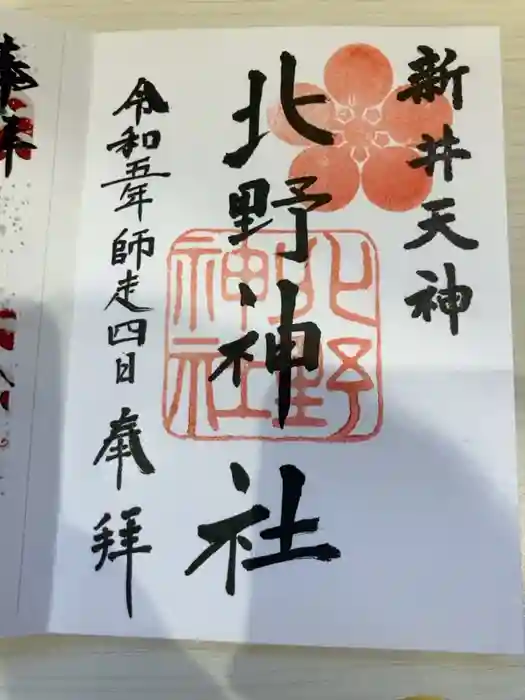 新井天神
北野神社
北野神社
令和五年師走四日 奉拝
奉拝